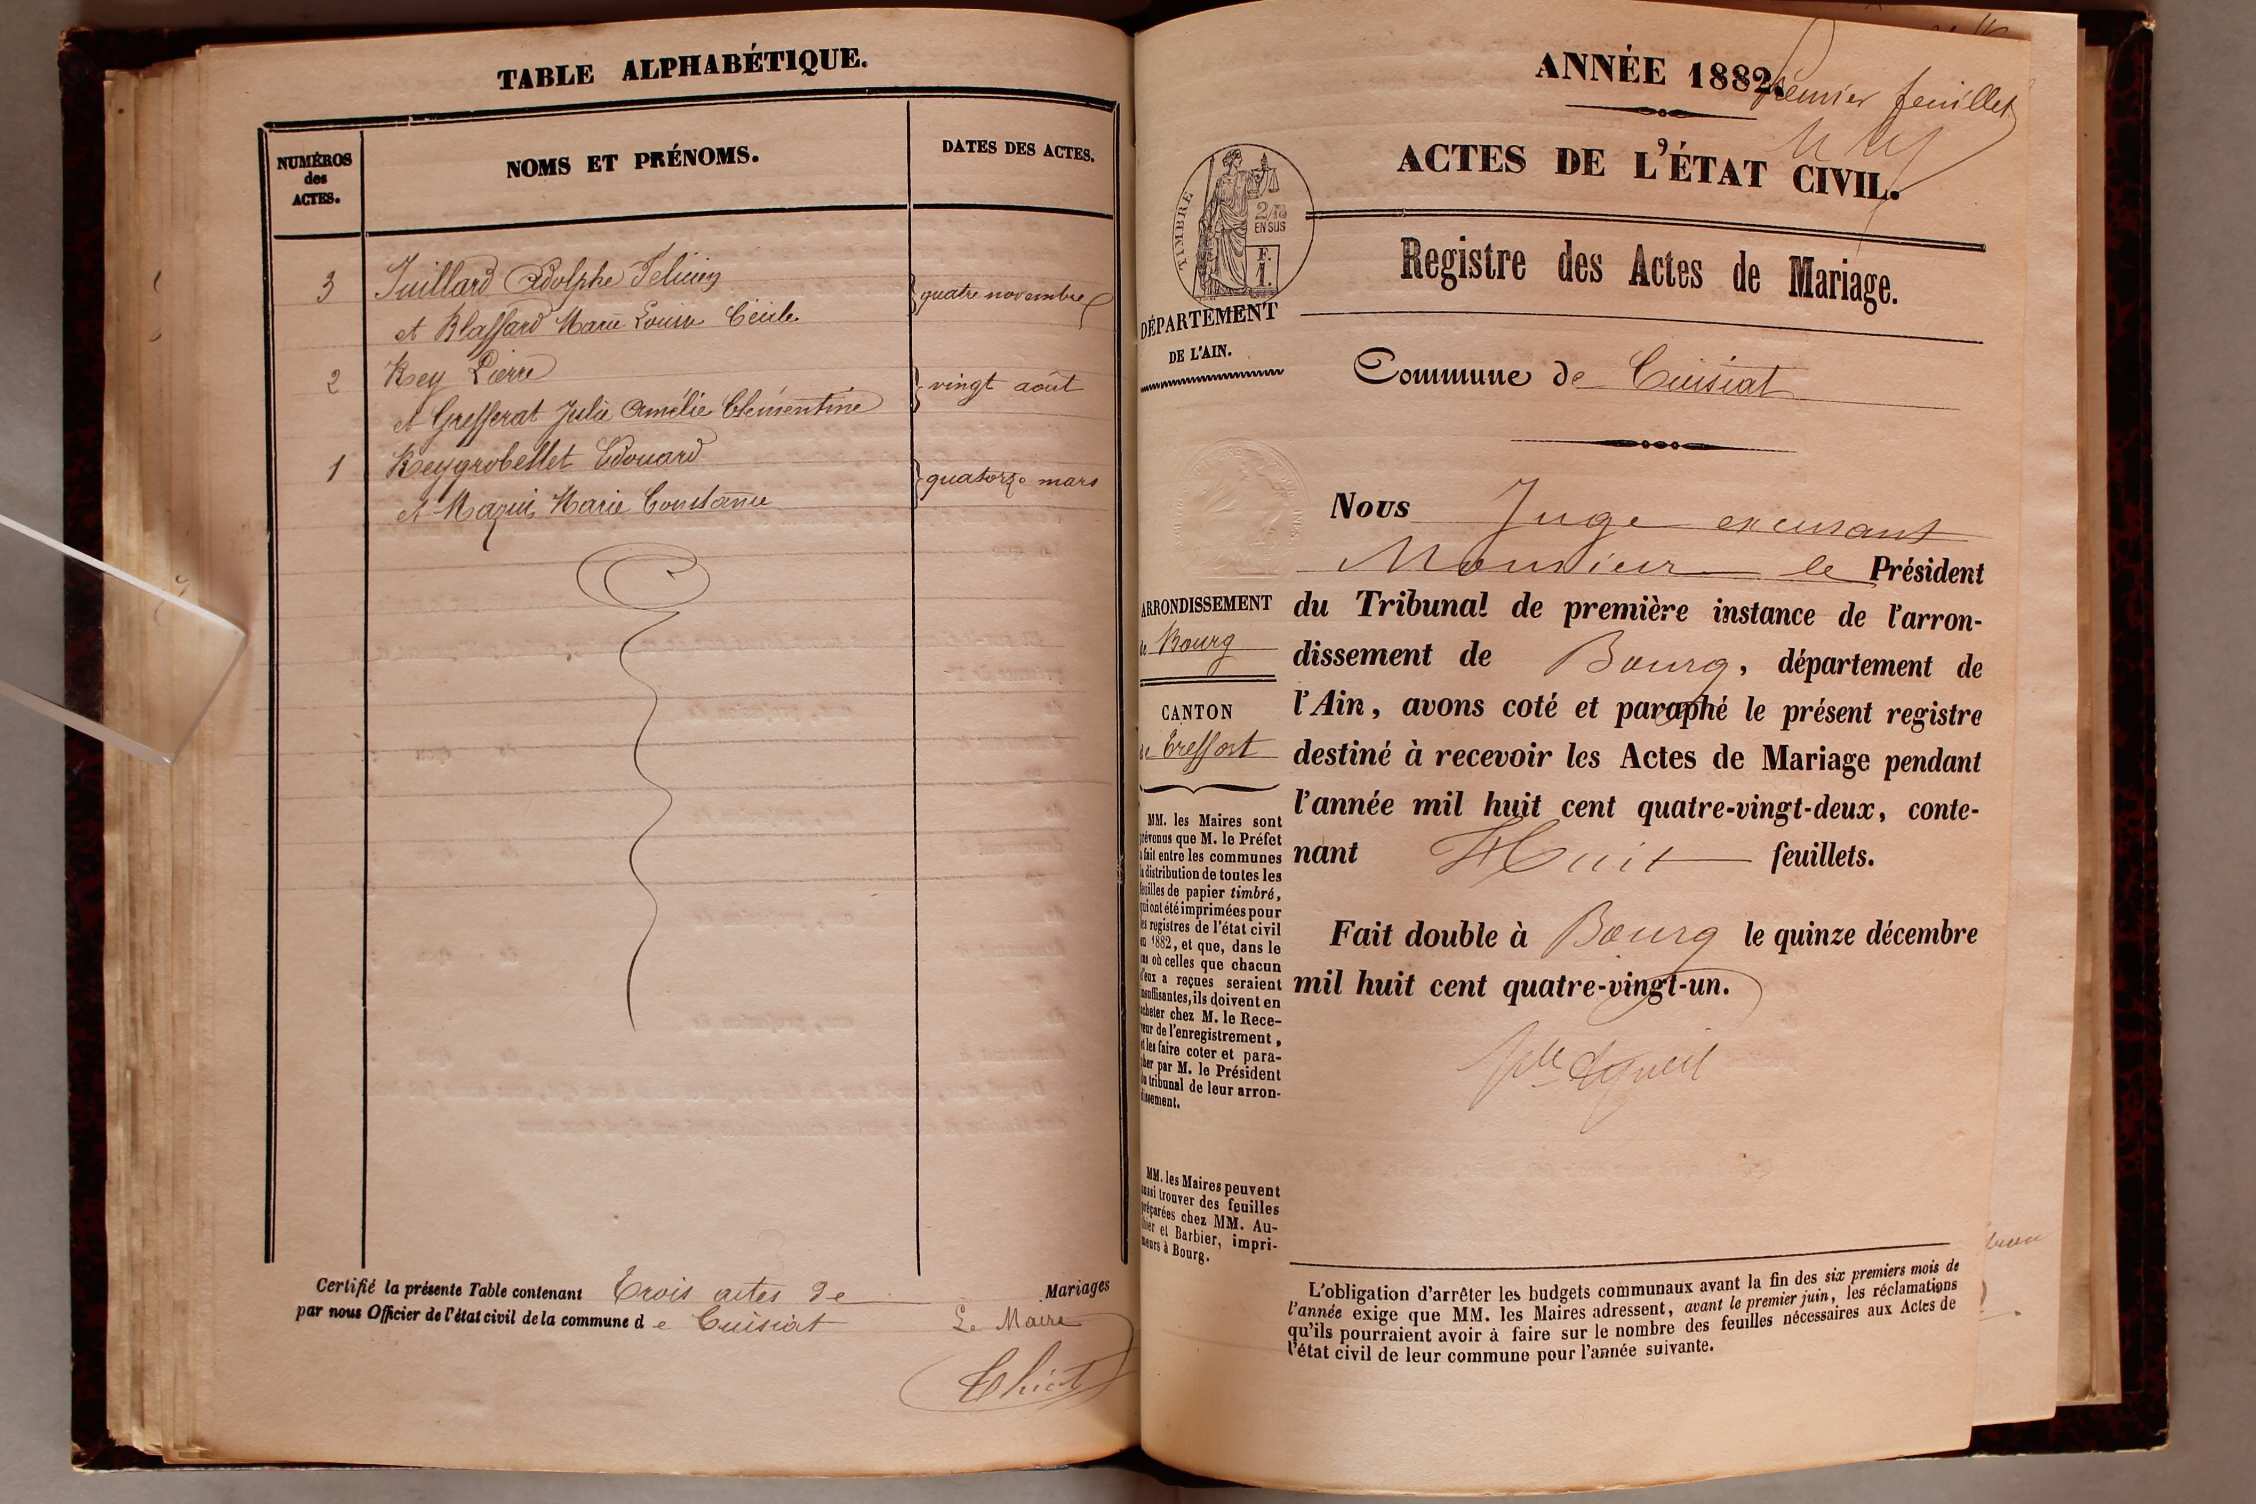 TABLE ALPHABÉTIQUE.
NUMÉROS
des
ACTES.
NOMS ET PRÉNOMS.
DATES DES ACTES.
3 Juillard Adolphe Felicien
et Blassard Marie Louise Cécile
quatre novembre
2 Rey Pierre
et Grefferat Julie Amélie Clémentine
vingt août
1 Reygrobellet Edouard
et Mazui Marie Constance
quatorze mars
Certifié la présente Table contenant Trois actes de Mariages
par nous Officier de l'état civil de la commune de Cuisiat Le Maire
Chicot
ANNÉE 1882.
Premier feuillet
ACTES DE L'ÉTAT CIVIL.
TIMBRE
2/10
EN SUS
F.
1.
Registre des Actes de Mariage.
DÉPARTEMENT
DE L'AIN.
Commune de Cuisiat
Nous Juge excusant
Monsieur le Président
du Tribunal de première instance de l'arron-
dissement de Bourg, département de
l'Ain, avons coté et paraphé le présent registre
destiné à recevoir les Actes de Mariage pendant
l'année mil huit cent quatre-vingt-deux, conte-
nant Huit feuillets.
Fait double à Bourg le quinze décembre
mil huit cent quatre-vingt-un.
ARRONDISSEMENT
de Bourg
CANTON
de Treffort
MM. les Maires sont
prévenus que M. le Préfet
a fait entre les communes
la distribution de toutes les
feuilles de papier timbré,
qui ont été imprimées pour
les registres de l'état civil
en 1882, et que, dans le
cas où celles que chacun
d'eux a reçues seraient
insuffisantes, ils doivent en
acheter chez M. le Rece-
veur de l'enregistrement,
et les faire coter et para-
pher par M. le Président
du tribunal de leur arron-
dissement.
MM. les Maires peuvent
aussi trouver des feuilles
préparées chez MM. Au-
thier et Barbier, impri-
meurs à Bourg.
L'obligation d'arrêter les budgets communaux avant la fin des six premiers mois de
l'année exige que MM. les Maires adressent, avant le premier juin, les réclamations
qu'ils pourraient avoir à faire sur le nombre des feuilles nécessaires aux Actes de
l'état civil de leur commune pour l'année suivante.